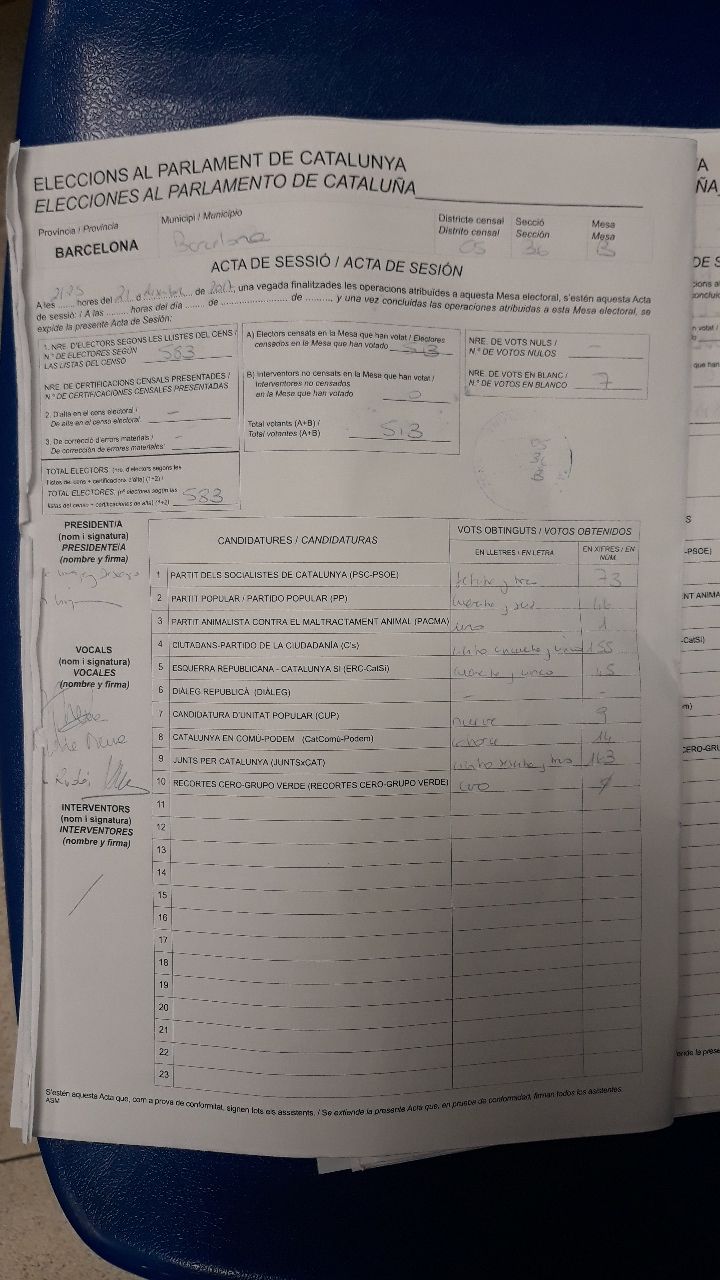 ELECCIONS AL PARLAMENT DE CATALUNYA
ELECCIONES AL PARLAMENTO DE CATALUÑA
Província / Provincia
BARCELONA
Municipi / Municipio
Barcelona
Districte censal Secció Mesa
Distrito censal Sección Mesa
05 36 B
ACTA DE SESSIÓ / ACTA DE SESIÓN
A les hores del 21 d de 2017, una vegada finalitzades les operacions atribuïdes a aquesta Mesa electoral, s'estén aquesta Acta
de sessió: / A las ....... horas del día ....... de ....................... de ........., y una vez concluidas las operaciones atribuidas a esta Mesa electoral, se
expide la presente Acta de Sesión:
1. NRE. D'ELECTORS SEGONS LES LLISTES DEL CENS /
N.º DE ELECTORES SEGÚN
LAS LISTAS DEL CENSO 583
NRE. DE CERTIFICACIONS CENSALS PRESENTADES /
N.º DE CERTIFICACIONES CENSALES PRESENTADAS
2. D'alta en el cens electoral /
De alta en el censo electoral: –
3. De correcció d'errors materials /
De corrección de errores materiales: –
TOTAL ELECTORS. (nre. d'electors segons les
llistes del cens + certificacions d'alta) (1+2) /
TOTAL ELECTORES. (nº electores según las
listas del censo + certificaciones de alta) (1+2) 583
A) Electors censats en la Mesa que han votat / Electores
censados en la Mesa que han votado 513
B) Interventors no censats en la Mesa que han votat /
Interventores no censados
en la Mesa que han votado 0
Total votants (A+B) /
Total votantes (A+B) 513
NRE. DE VOTS NULS /
N.º DE VOTOS NULOS –
NRE. DE VOTS EN BLANC /
N.º DE VOTOS EN BLANCO 7
05
36
B
PRESIDENT/A
(nom i signatura)
PRESIDENTE/A
(nombre y firma)
VOCALS
(nom i signatura)
VOCALES
(nombre y firma)
INTERVENTORS
(nom i signatura)
INTERVENTORES
(nombre y firma)
CANDIDATURES / CANDIDATURAS
VOTS OBTINGUTS / VOTOS OBTENIDOS
EN LLETRES / EN LETRA
EN XIFRES / EN NÚM.
1 PARTIT DELS SOCIALISTES DE CATALUNYA (PSC-PSOE) setenta y tres 73
2 PARTIT POPULAR / PARTIDO POPULAR (PP) cuarenta y seis 46
3 PARTIT ANIMALISTA CONTRA EL MALTRACTAMENT ANIMAL (PACMA) uno 1
4 CIUTADANS-PARTIDO DE LA CIUDADANÍA (C's) 155
5 ESQUERRA REPUBLICANA - CATALUNYA SÍ (ERC-CatSí) cuarenta y cinco 45
6 DIÀLEG REPUBLICÀ (DIÀLEG) – –
7 CANDIDATURA D'UNITAT POPULAR (CUP) nueve 9
8 CATALUNYA EN COMÚ-PODEM (CatComú-Podem) catorce 14
9 JUNTS PER CATALUNYA (JUNTSxCAT) 163
10 RECORTES CERO-GRUPO VERDE (RECORTES CERO-GRUPO VERDE) cero
11
12
13
14
15
16
17
18
19
20
21
22
23
S'estén aquesta Acta que, com a prova de conformitat, signen tots els assistents. / Se extiende la presente Acta que, en prueba de conformidad, firman todos los asistentes.